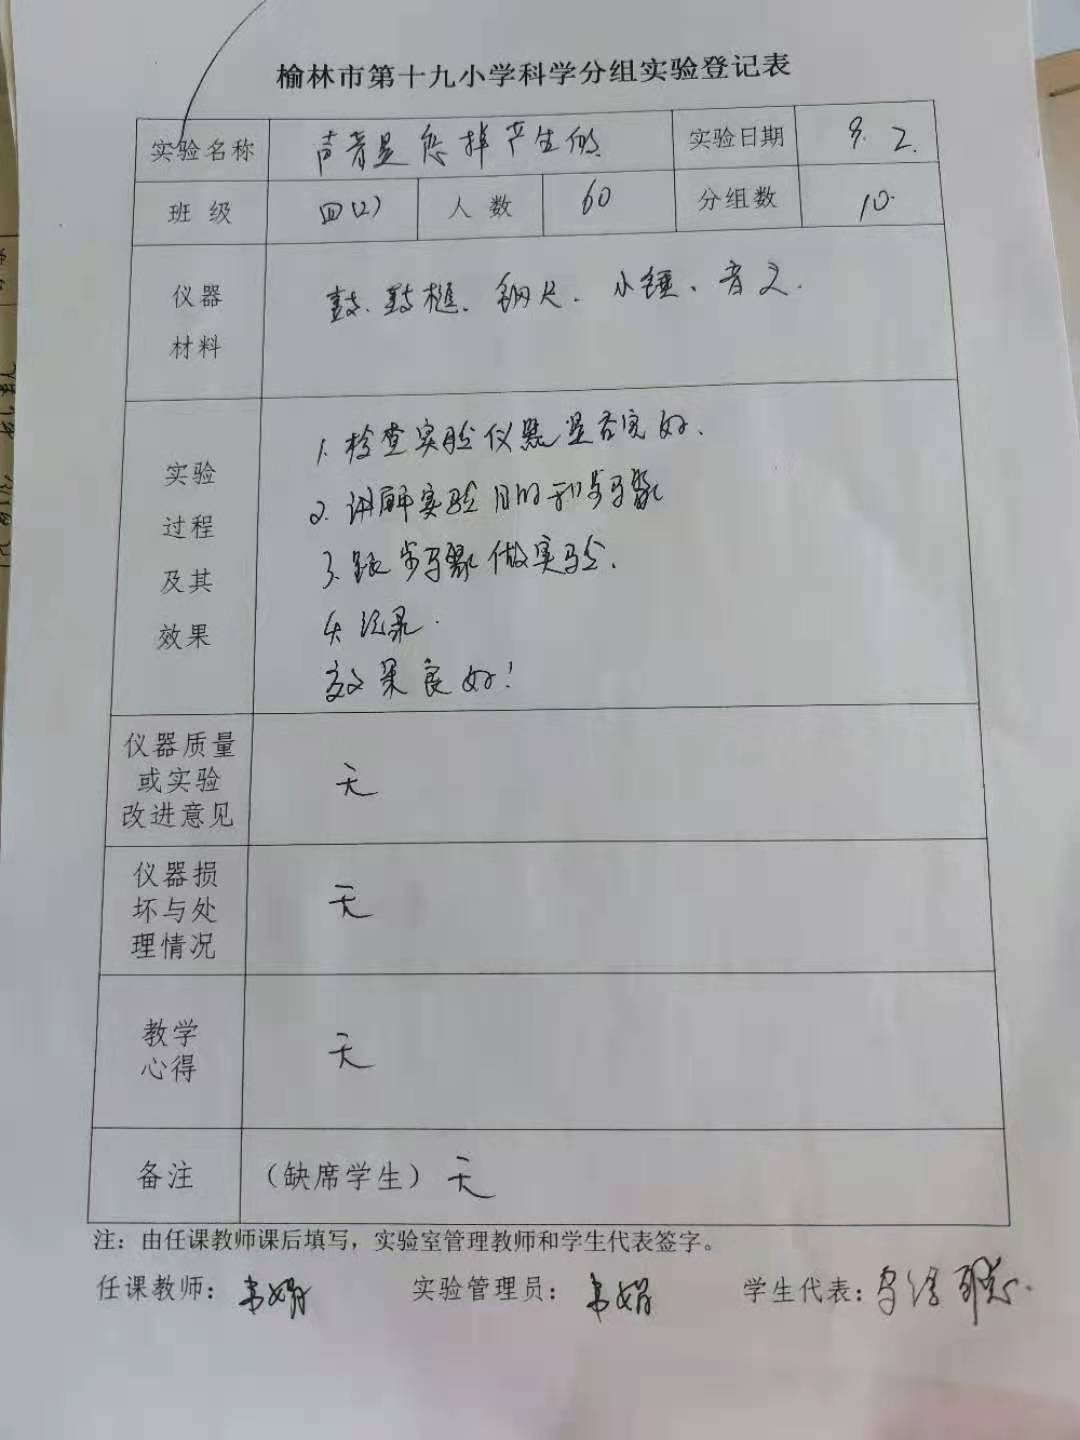 榆林市第十九小学科学分组实验登记表
实验名称 声音是怎样产生的 实验日期 9.2.
班级 四(2) 人数 60 分组数 10.
仪器
材料
鼓、鼓槌、钢尺、小锤、音叉.
实验
过程
及其
效果
1.检查实验仪器是否完好.
2.讲解实验目的和步骤
3.跟步骤做实验.
4.记录.
效果良好!
仪器质量
或实验
改进意见
无
仪器损
坏与处
理情况
无
教学
心得
无
备注 (缺席学生) 无
注:由任课教师课后填写,实验室管理教师和学生代表签字。
任课教师: 实验管理员: 学生代表: